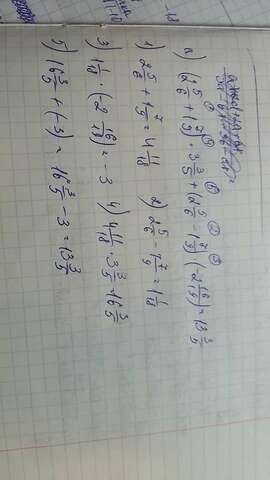 а) (2 5/6 + 1 7/9) · 3 3/5 + (2 5/6 - 1 7/9) · (-2 16/19) = 13 3/5
1) 2 5/6 + 1 7/9 = 4 11/18 2) 2 5/6 - 1 7/9 = 1 1/18
3) 1 1/18 · (-2 16/19) = -3 4) 4 11/18 · 3 3/5 = 16 3/5
5) 16 3/5 + (-3) = 16 3/5 - 3 = 13 3/5